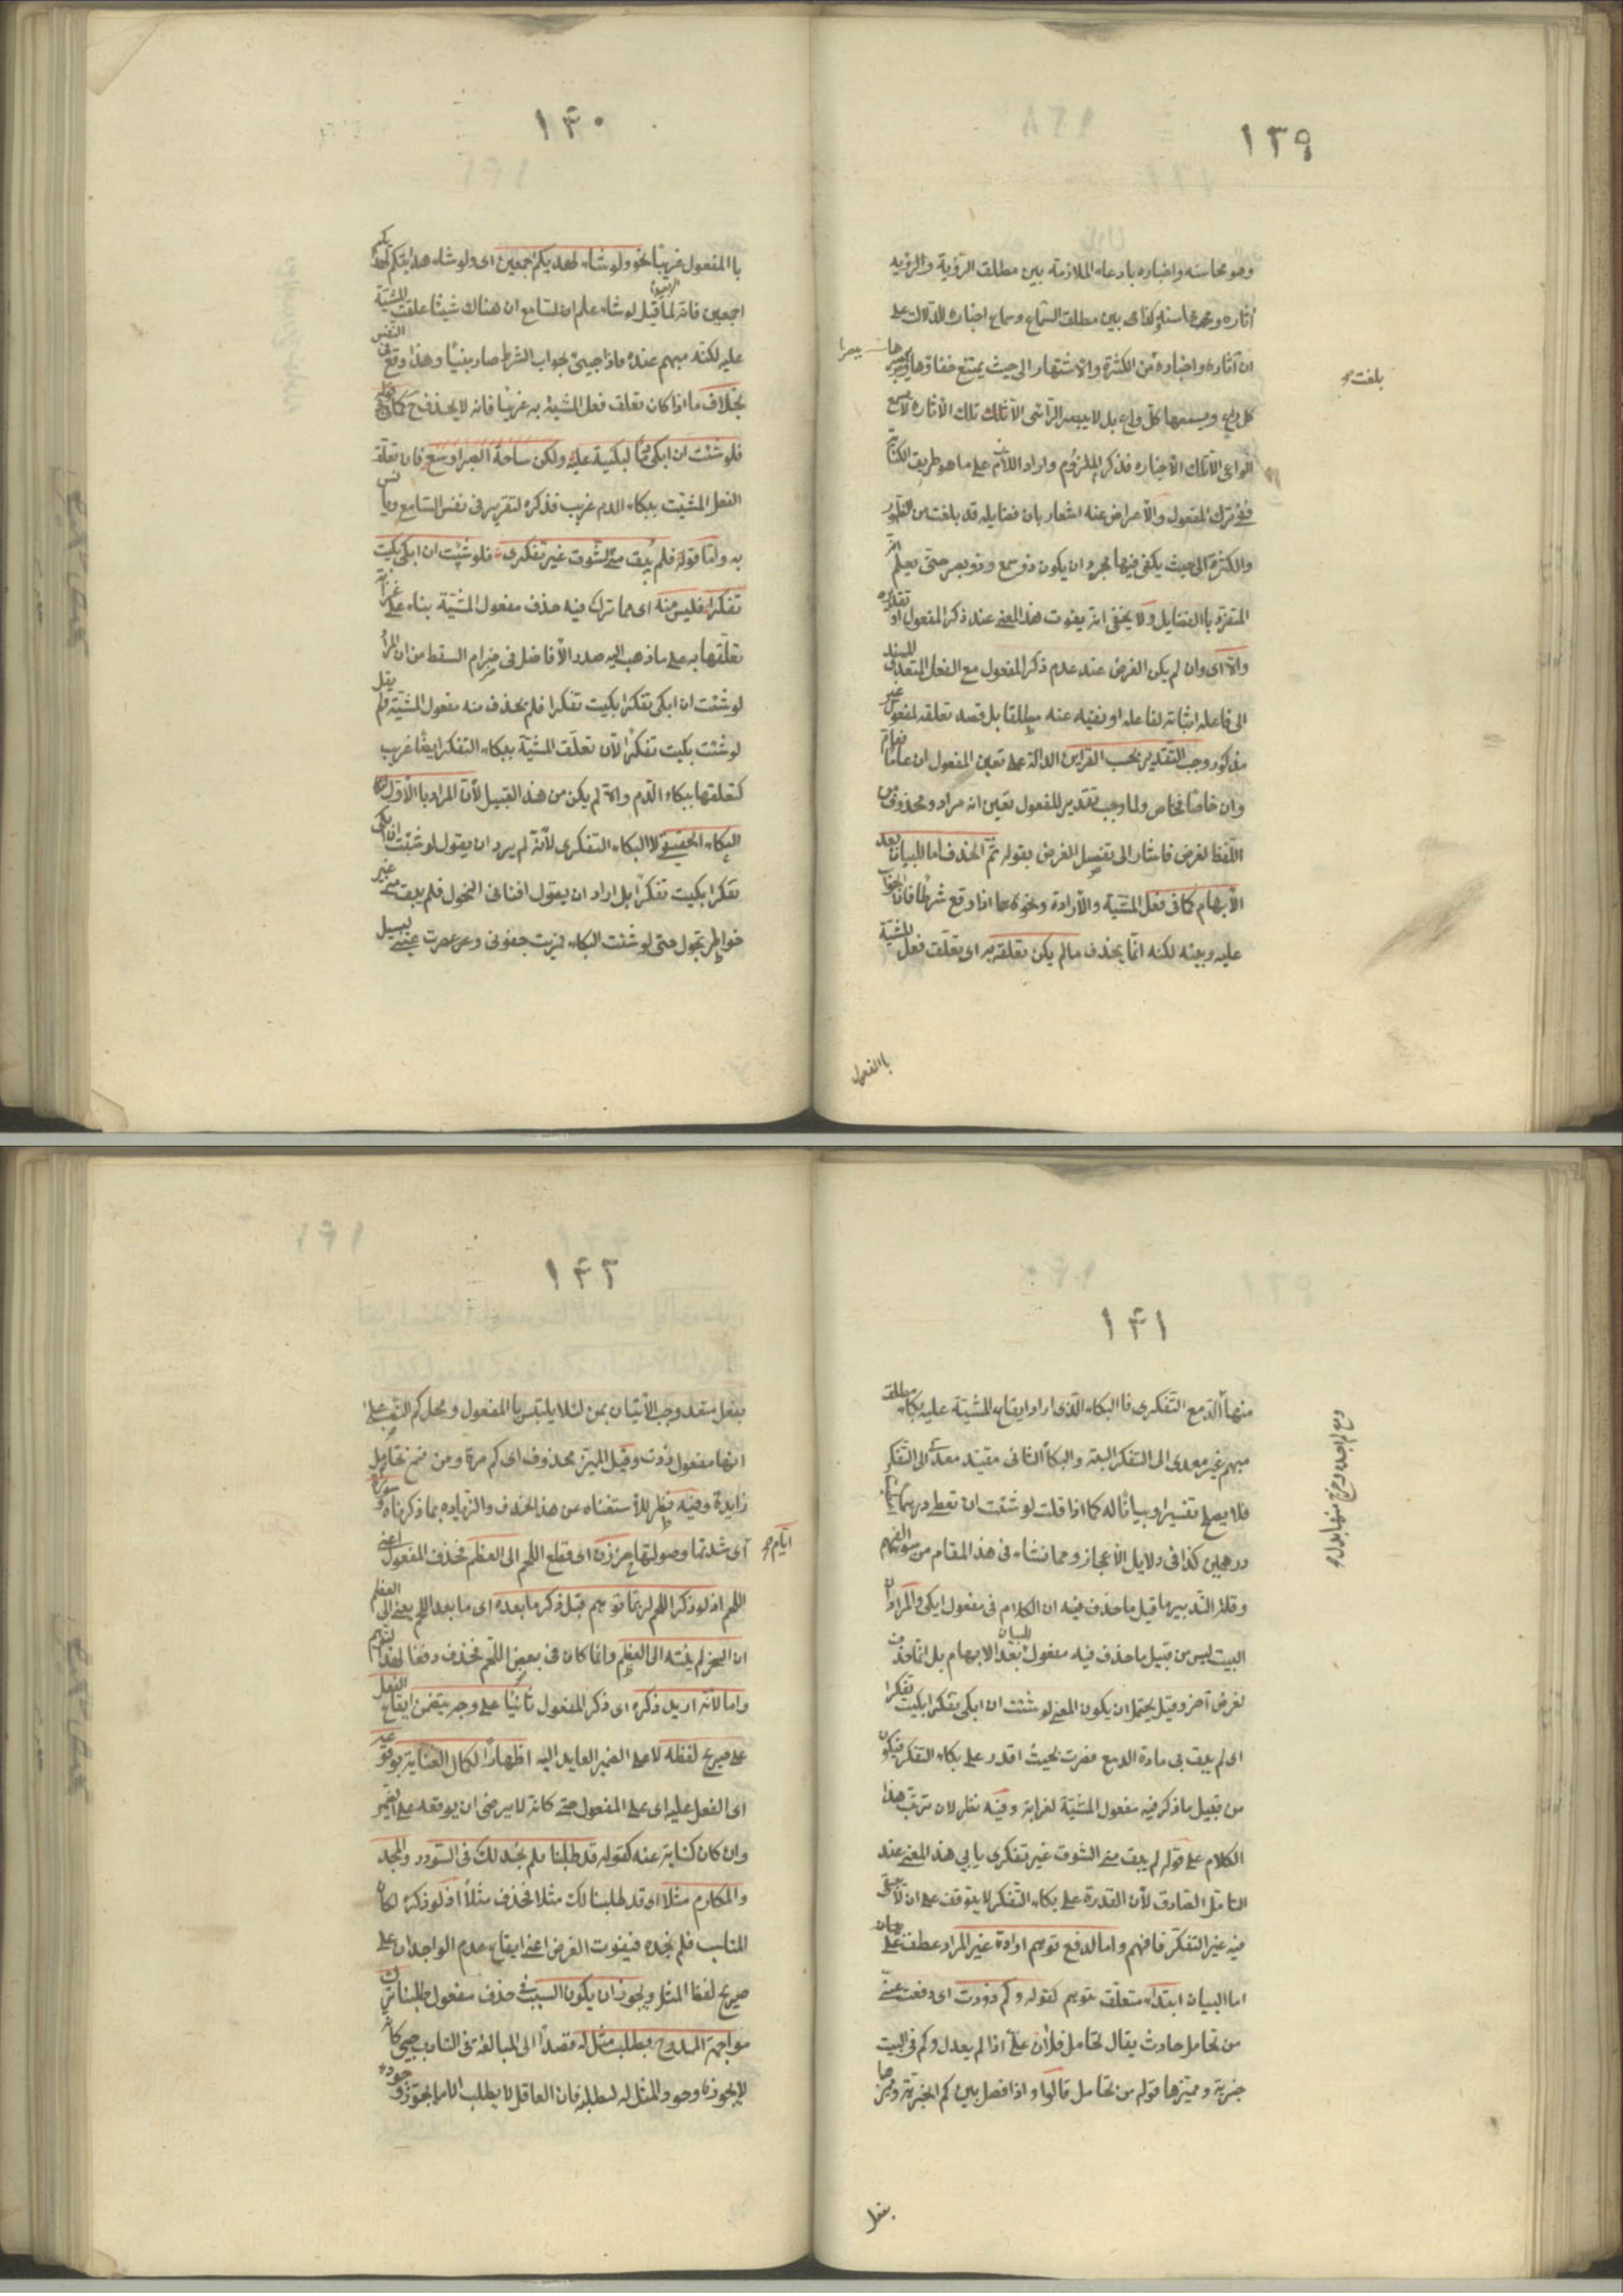 ١٣٩
وهو محاسنه واخباره بادعاء الملازمة بين مطلق الرؤية والرؤية
آثاره ومحاسنه وكذا بين مطلق السماع وسماع اخباره للدلالة على
ان آثاره واخباره من الكثرة والاشتهار الى حيث يمتنع خفاؤها
كل راء ويسمعها كل واع بل لا يبصر الرائى الا تلك الآثار ولا يسمع
الواعى الا تلك الاخبار فذكر الملزوم واراد اللازم على ما هو طريق الكناية
ففى ترك المفعول والاعراض عنه اشعار بان فضايله قد بلغت من الظهور
والكثرة الى حيث يكفى فيها مجرد ان يكون ذو سمع وذو بصر حتى يعلم انه
المتفرد با الفضايل ولا يخفى انه يفوت هذا المعنى عند ذكر المفعول او تقديره
والا اى وان لم يكن الغرض عند عدم ذكر المفعول مع الفعل المتعدى المسند
الى فاعله اثباته لفاعله او نفيه عنه مطلقا بل قصد تعلقه لمفعول غير
مذكور وجب التقدير بحسب القراين الدالة على تعين المفعول ان عاما فعام
وان خاصا فخاص ولما وجب تقدير المفعول تعين انه مراد ومحذوف من
اللفظ لغرض فاشار الى تفصيل الغرض بقوله ثم الحذف اما للبيان بعد
الابهام كما فى فعل المشية والارادة ونحوهما اذا وقع شرطا فان الجواب
عليه ويبينه لكنه انما يحذف ما لم يكن تعلقه به اى تعلق فعل المشية
با المفعول
بلغت
١٤٠
با المفعول غريبا نحو ولو شاء لهديكم اجمعين اى ولو شاء هدايتكم لهديكم
اجمعين فانه لما قيل لو شاء علم السامع ان هناك شيئا علقت المشية
عليه لكنه مبهم عنده فاذا جيئ بجواب الشرط صار مبينا وهذا اوقع فى النفس
بخلاف ما اذا كان تعلق فعل المشية به غريبا فانه لا يحذف ح كما فى قوله
فلو شئت ان ابكى دما لبكيته عليه ولكن ساحة الصبر اوسع فان تعلق
الفعل المشيت ببكاء الدم غريب فذكره لتقريره فى نفس السامع ويانس
به واما قوله فلم يبق منى الشوق غير تفكرى فلو شئت ان ابكى بكيت
تفكرا فليس منه اى مما ترك فيه حذف مفعول المشية بناء على غرابة
تعلقها به على ما ذهب اليه صدر الافاضل فى ضرام السقط من ان المراد
لو شئت ان ابكى تفكرا بكيت تفكرا فلم يحذف منه مفعول المشية فلم يقل
لو شئت بكيت تفكرا لان تعلق المشية ببكاء التفكر ايضا غريب
كتعلقها ببكاء الدم وانما لم يكن من هذا القبيل لان المراد با الاول
البكاء الحقيقى لا البكاء التفكرى لانه لم يرد ان يقول لو شئت ان ابكى
تفكرا بكيت تفكرا بل اراد ان يقول افنانى النحول فلم يبق منى غير
خواطر تجول حتى لو شئت البكاء فمريت جفونى وعصرت عينى ليسيل
١٤١
منها الدمع التفكرى فا البكاء الذى اراد ايقاع المشية عليه بكاء مطلق
مبهم غير معدى الى التفكر البتة والبكاء الثانى مقيد معدى الى التفكر
فلا يصلح تفسيرا وبيانا له كما اذا قلت لو شئت ان تعطى درهما اعطيت
درهمين كذا فى دلايل الاعجاز ومما نشاء فى هذا المقام من سوء الفهم
وقلة التدبير ما قيل ما حذف فيه ان الكلام فى مفعول ابكى والمراد ان
البيت ليس من قبيل ما حذف فيه مفعول للبيان بعد الابهام بل انما حذف
لغرض آخر وقيل يحتمل ان يكون المعنى لو شئت ان ابكى تفكرا بكيت تفكرا
اى لم يبق بى مادة الدمع فصرت بحيث اقدر على بكاء التفكر فيكون
من قبيل ما ذكر فيه مفعول المشية لغرابته وفيه نظر لان ترتب هذا
الكلام على قوله لم يبق منى الشوق غير تفكرى يابى هذا المعنى عند
التامل الصادق لان القدرة على بكاء التفكر لا يتوقف على ان لا يبقى
فيه غير التفكر فافهم واما لدفع توهم ارادة غير المراد عطف على
اما للبيان ابتداء متعلق بتوهم كقوله وكم ذدت اى دفعت عنى
من تحامل حادث يقال تحامل فلان على اذا لم يعدل وكم فى البيت
خبرية ومميزها قوله من تحامل قالوا واذا فصل بين كم الخبرية ومميزها
بفعل
١٤٢
بفعل متعد وجب الاتيان بمن لئلا يلتبس با المفعول ومحل كم النصب على
انها مفعول ذدت وقيل المميز محذوف اى كم مرة ومن فى من تحامل
زايدة وفيه نظر للاستغناء عن هذا الحذف والزيادة بما ذكرناه وسورة
ايام
اى شدتها وصولتها حززن اى قطع اللحم الى العظم فحذف المفعول اعنى
اللحم اذ لو ذكر اللحم لربما توهم قبل ذكر ما بعده اى ما بعد اللحم يعنى الى العظم
ان الحز لم ينته الى العظم وانما كان فى بعض اللحم فحذف دفعا لهذا التوهم
واما لانه اريد ذكره اى ذكر المفعول ثانيا على وجه يتضمن ايقاع الفعل
على صريح لفظه لا على الضمير العايد اليه اظهارا لكمال العناية بوقوعه
اى الفعل عليه اى على المفعول حتى كانه لا يرضى ان يوقعه على الضمير
وان كان كناية عنه كقوله قد طلبنا فلم نجد لك فى السودد والمجد
والمكارم مثلا اى قد طلبنا لك مثلا فحذف مثلا اذ لو ذكره لكان
المناسب فلم نجده فيفوت الغرض اعنى ايقاع عدم الوجدان على
صريح لفظ المثل ويجوز ان يكون السبب فى حذف مفعول طلبنا ترك
مواجهة الممدوح بطلب مثل له قصدا الى المبالغة فى التادب حتى كانه
لا يجوز وجود المثل له ليطلبه فان العاقل لا يطلب الا ما يجوز وجوده